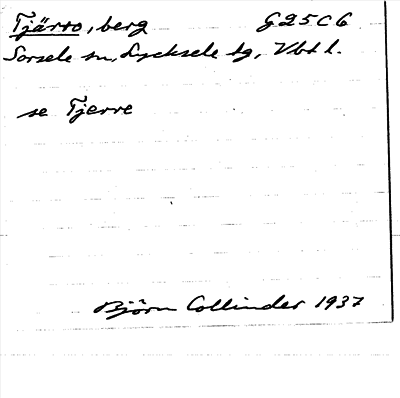 Tjärro, berg G25C6
Sorsele sn, Lycksele tg, Vbtl.
se Tjerre
Björn Collinder 1937